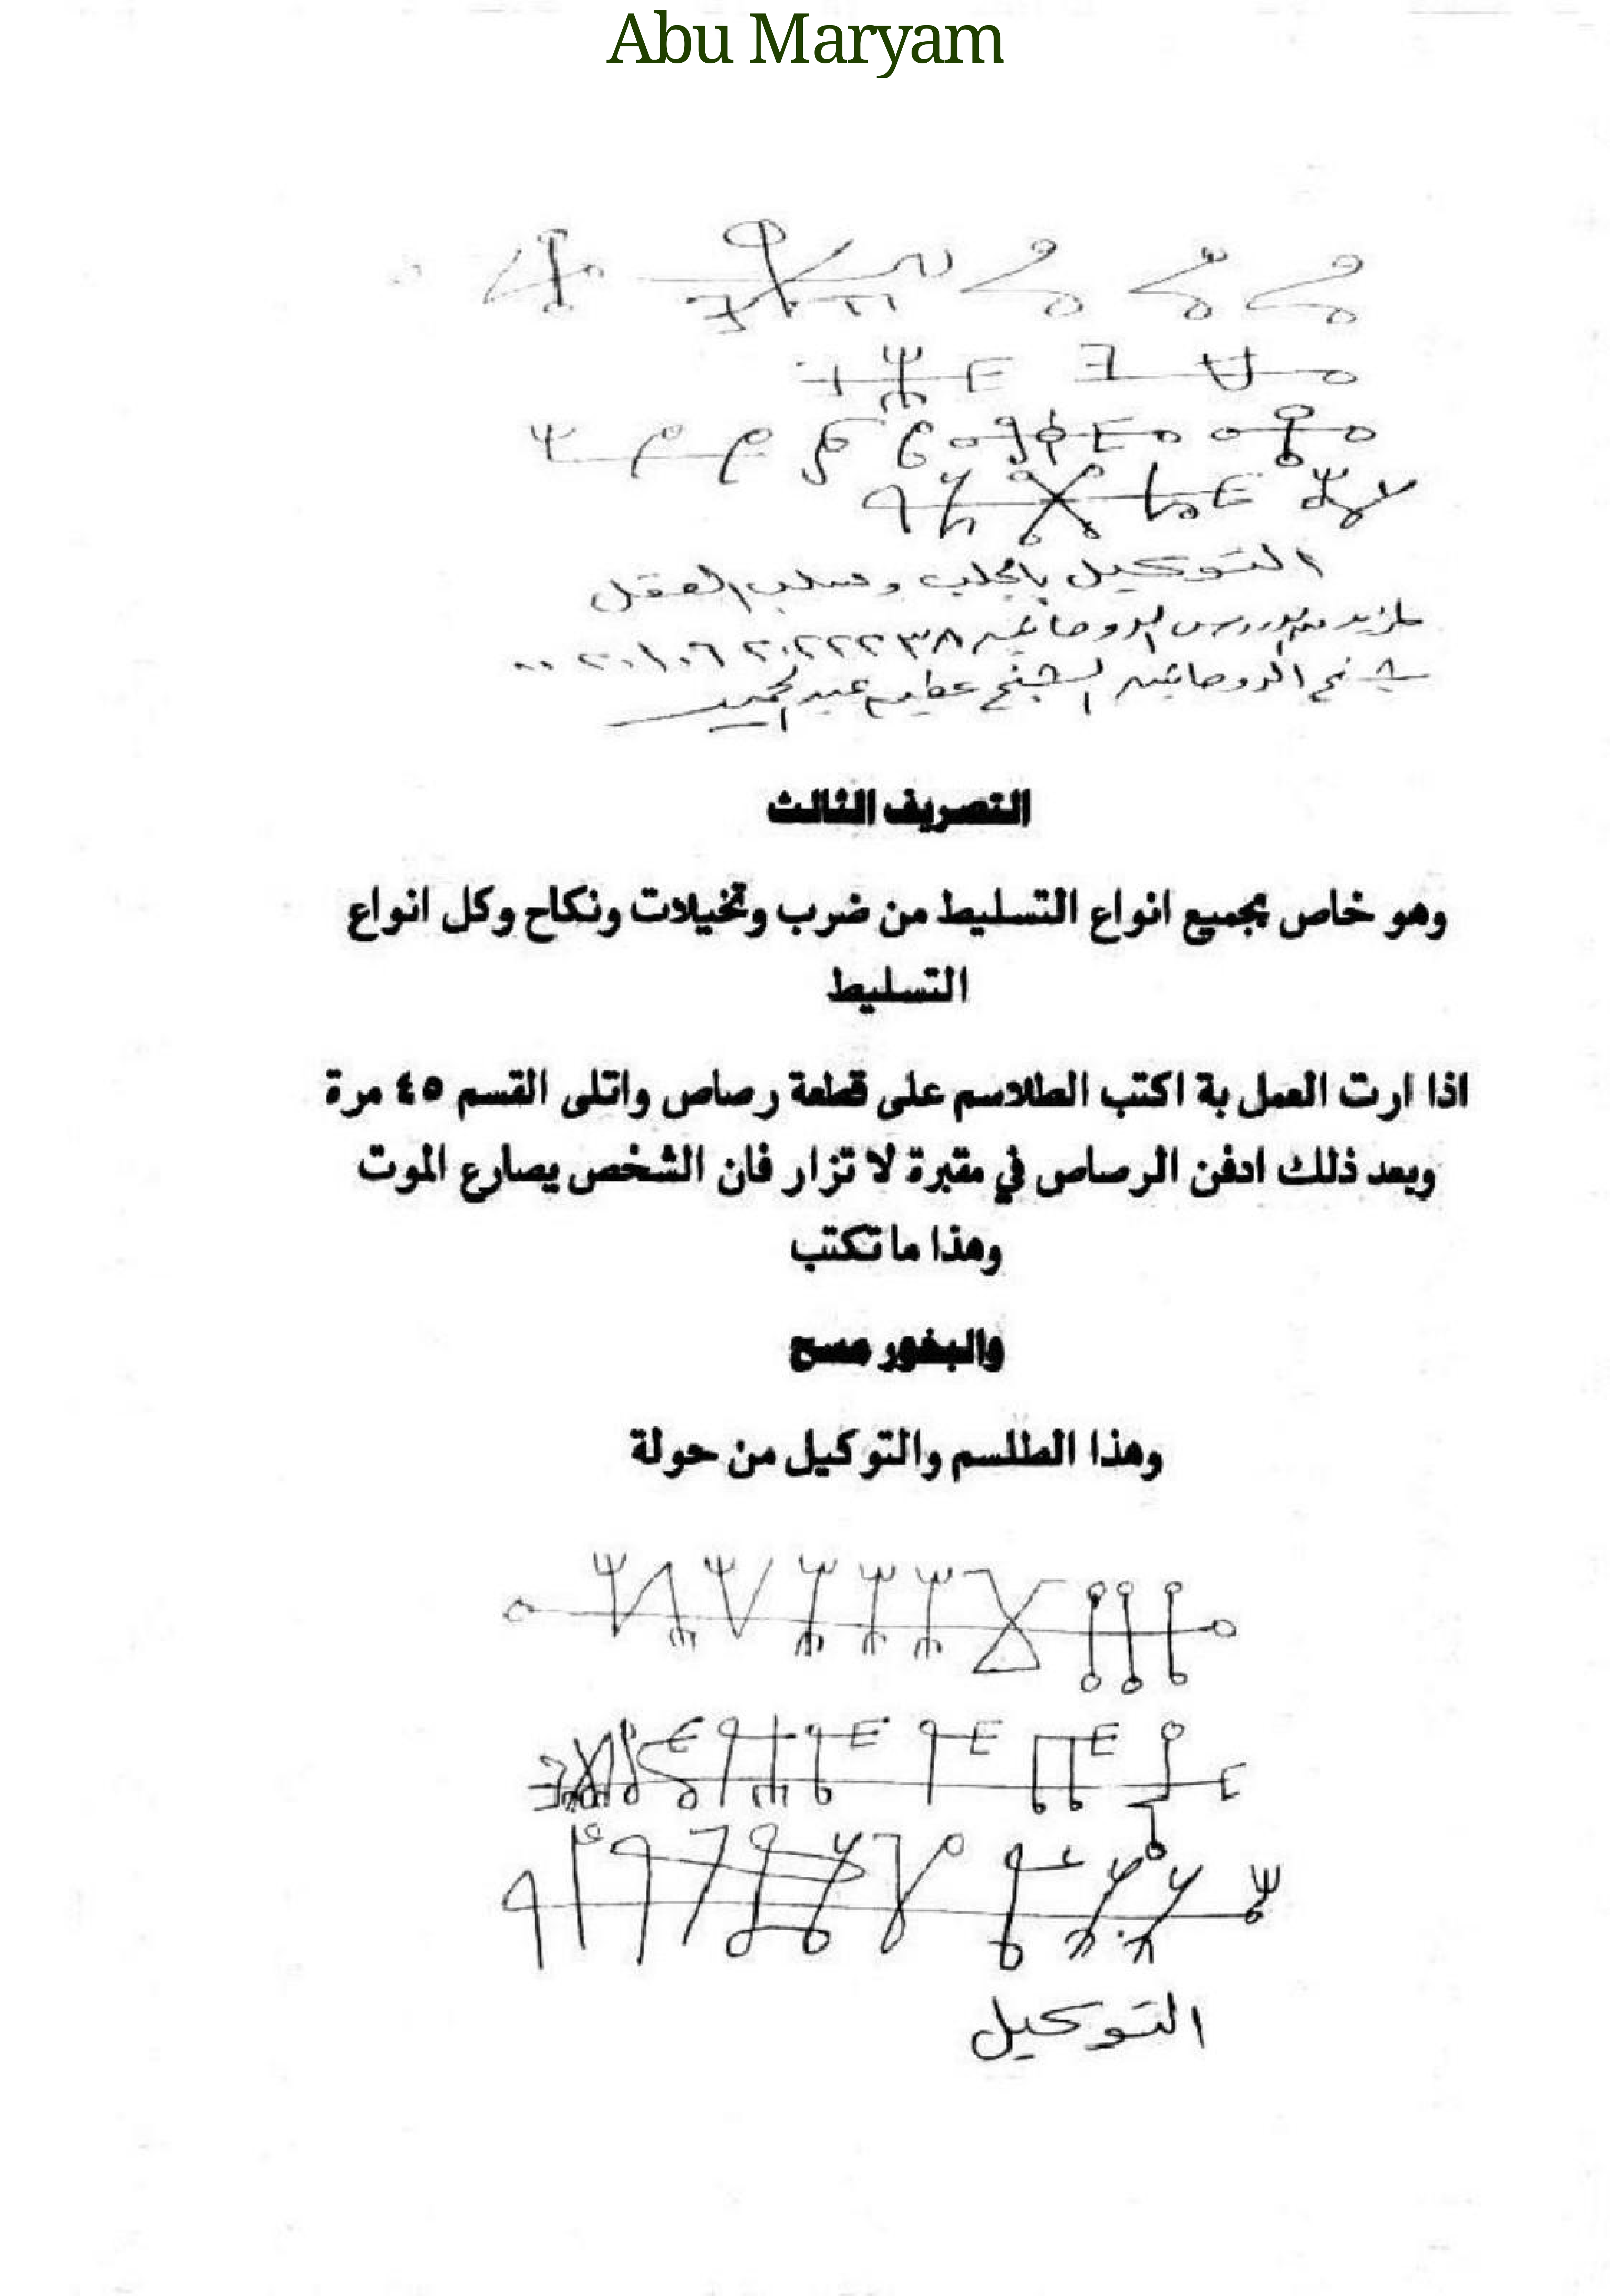 Abu Maryam
التوكيل بالجلب وسلب العقل
لمزيد من الدروس الروحانيه
شيخ الروحانيه الشيخ عطيه عبد الحميد
التصريف الثالث
وهو خاص بجميع انواع التسليط من ضرب وتخيلات ونكاح وكل انواع
التسليط
اذا ارت العمل بة اكتب الطلاسم على قطعة رصاص واتلى القسم ٤٥ مرة
وبعد ذلك ادفن الرصاص في مقبرة لا تزار فان الشخص يصارع الموت
وهذا ما تكتب
والبخور مسح
وهذا الطلسم والتوكيل من حولة
التوكيل